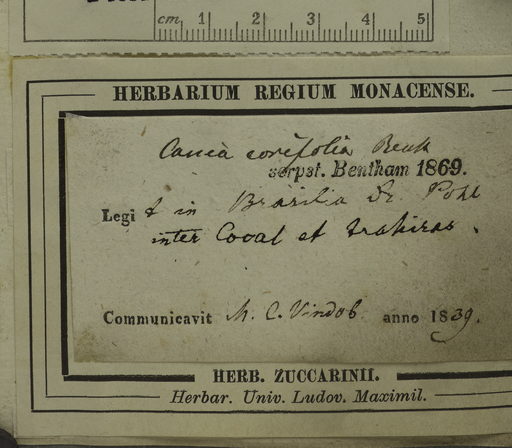 cm 1 2 3 4 5
HERBARIUM REGIUM MONACENSE.
Cassia corifolia Benth
scrpst. Bentham 1869.
Legit in Brasilia Dr Pohl
inter Cocal et trahiras.
Communicavit M. C. Vindob. anno 1839.
HERB. ZUCCARINII.
Herbar. Univ. Ludov. Maximil.